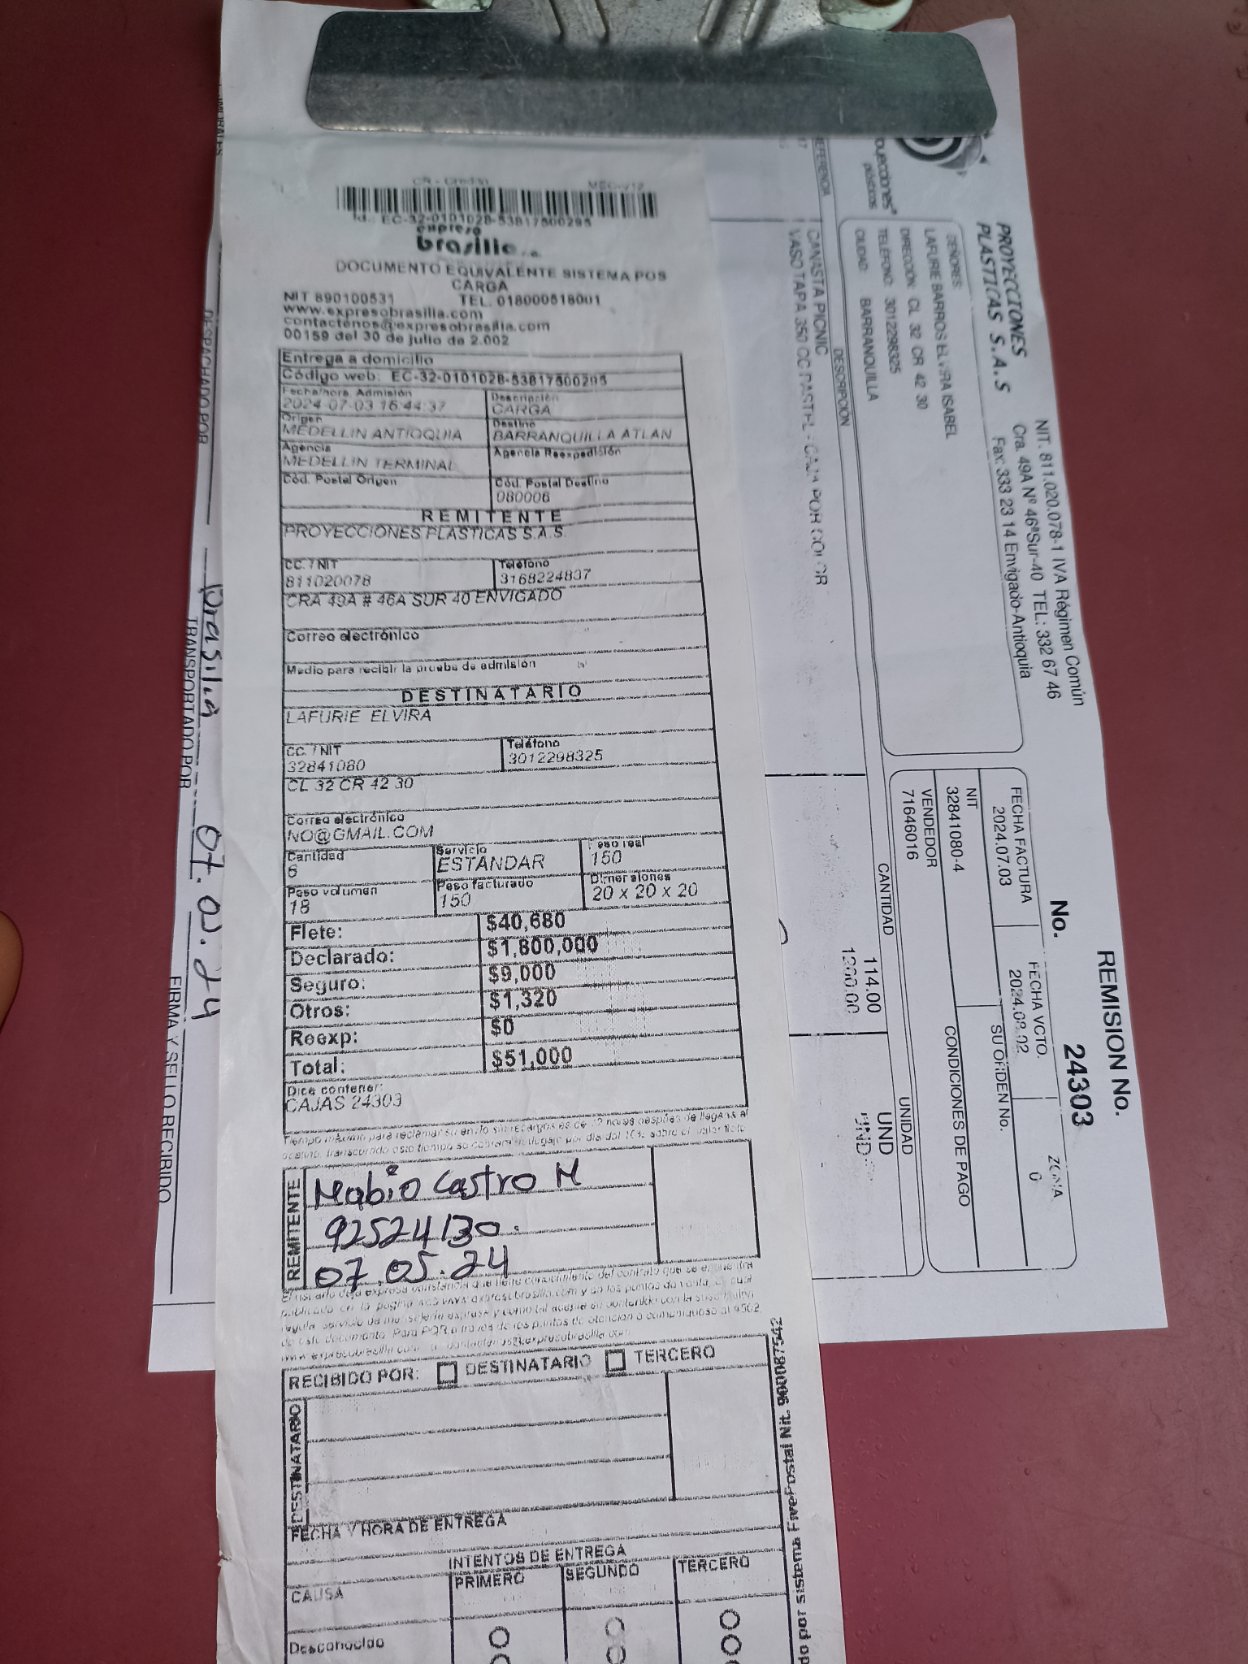 Id.: EC-32-0101028-53817500295
expreso
brasilia s.a.
DOCUMENTO EQUIVALENTE SISTEMA POS
CARGA
NIT 890100531 TEL. 018000518001
www.expresobrasilia.com
contactenos@expresobrasilia.com
00159 del 30 de julio de 2.002
Entrega a domicilio
Código web: EC-32-0101028-53817500295
Fecha/hora Admisión Descripción
2024-07-03 16:44:37 CARGA
Origen Destino
MEDELLIN ANTIOQUIA BARRANQUILLA ATLAN
Agencia Agencia Reexpedición
MEDELLIN TERMINAL
Cód. Postal Origen Cód. Postal Destino
080006
REMITENTE
PROYECCIONES PLASTICAS S.A.S
CC. / NIT Teléfono
811020078 3168224837
CRA 49A # 46A SUR 40 ENVIGADO
Correo electrónico
Medio para recibir la prueba de admisión
DESTINATARIO
LAFURIE ELVIRA
CC. / NIT Teléfono
32841080 3012298325
CL 32 CR 42 30
Correo electrónico
NO@GMAIL.COM
Cantidad Servicio Peso real
5 ESTANDAR 150
Peso volumen Peso facturado Dimensiones
18 150 20 x 20 x 20
Flete: $40,680
Declarado: $1,800,000
Seguro: $9,000
Otros: $1,320
Reexp: $0
Total: $51,000
Dice contener:
CAJAS 24303
REMITENTE
Mabio Castro M
92524130
07.05.24
RECIBIDO POR: DESTINATARIO TERCERO
DESTINATARIO
FECHA Y HORA DE ENTREGA
INTENTOS DE ENTREGA
CAUSA PRIMERO SEGUNDO TERCERO
Desconocido
REMISION No.
No. 24303
PROYECCIONES
PLASTICAS S.A.S
NIT. 811.020.078-1 IVA Régimen Común
Cra. 49A Nº 46ªSur-40 TEL: 332 67 46
Fax: 333 23 14 Envigado-Antioquia
SEÑORES:
LAFURIE BARROS ELVIRA ISABEL
DIRECCIÓN: CL 32 CR 42 30
TELEFONO: 3012298325
CIUDAD: BARRANQUILLA
FECHA FACTURA FECHA VCTO. ZONA
2024.07.03 2024.08.02 0
NIT SU ORDEN No.
32841080-4
VENDEDOR CONDICIONES DE PAGO
71646016
REFERENCIA DESCRIPCION CANTIDAD UNIDAD
CANASTA PICNIC 114.00 UND
VASO TAPA 350 CC PASTEL - CAJA POR COLOR 1200.00 UND
DESPACHADO POR
brasilia
TRANSPORTADO POR
FIRMA Y SELLO RECIBIDO